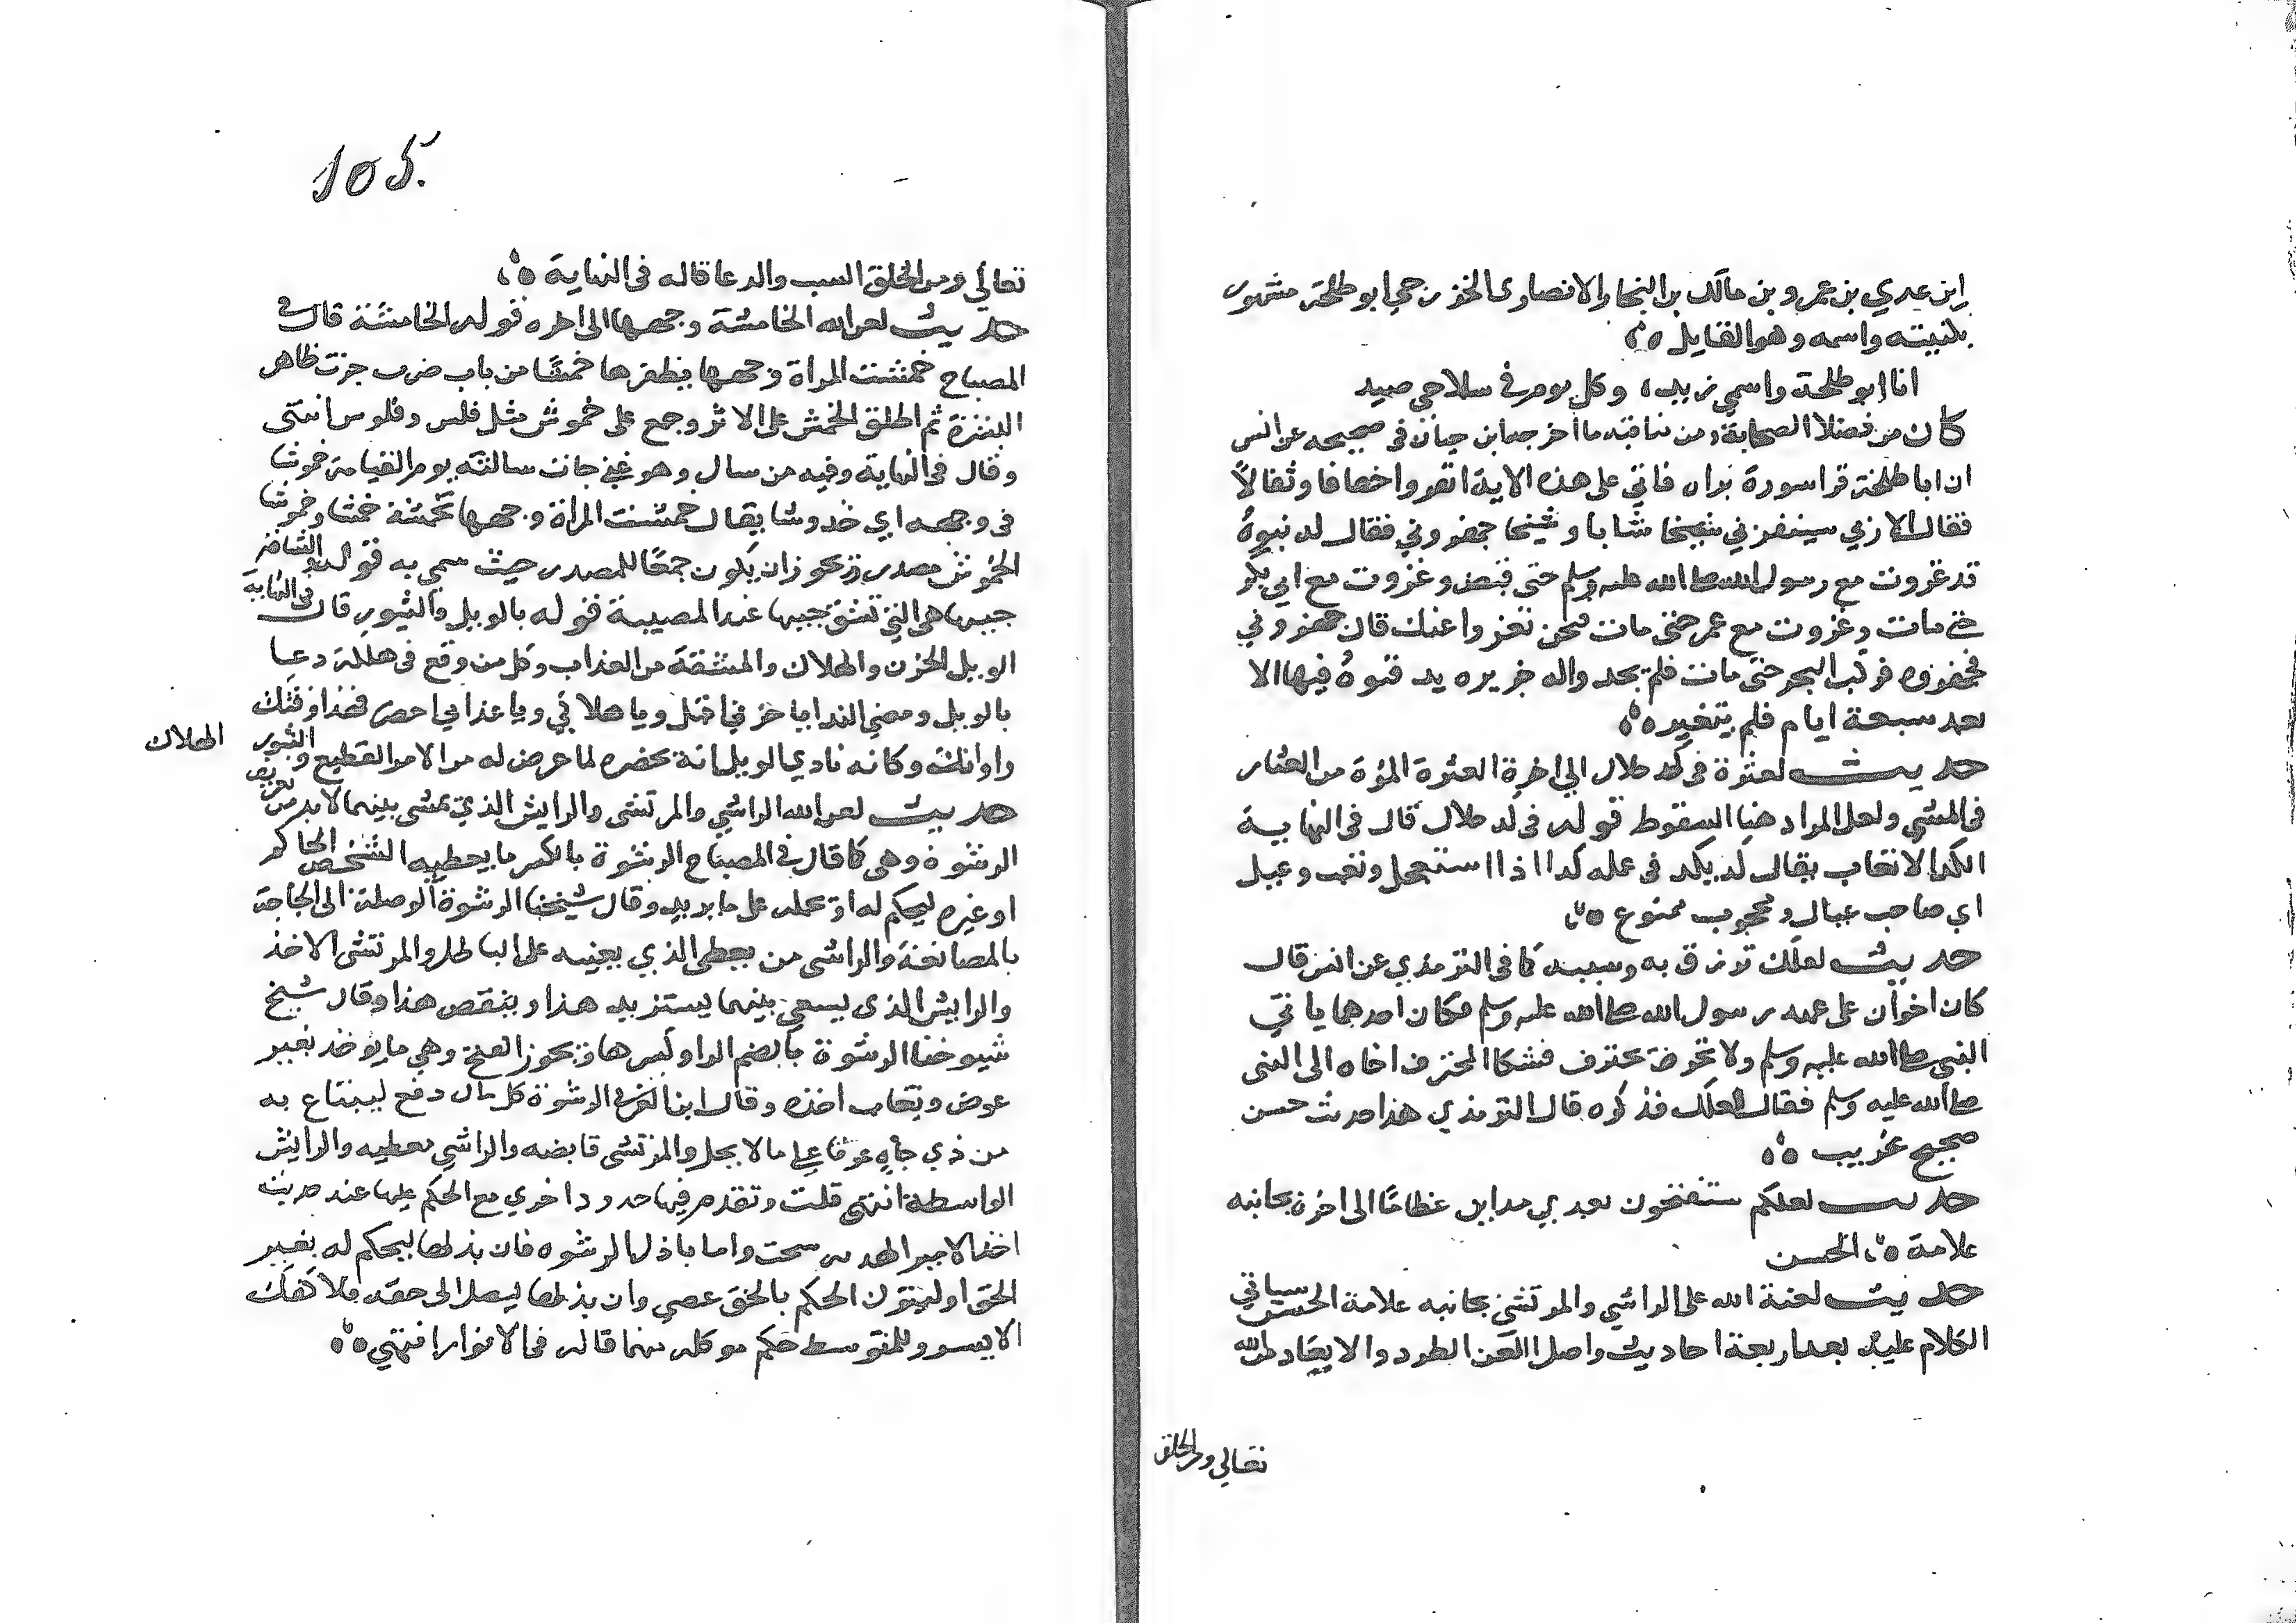 ابن عدي بن عمرو بن مالك بن النجار الانصاري الخزرجي ابو طلحة مشهور
بكنيته واسمه وهو القايل
انا ابو طلحة واسمي زيد، وكل يوم في سلاحي صيد
كان من فضلا الصحابة ومن مناقبه ما اخرجه ابن حبان في صحيحه عن انس
ان ابا طلحة قرا سورة براه فاتي على هذه الاية انفروا خفافا وثقالاً
فقال الا اري ربي يستنفرني شابا وشيخا جهزوني فقال له بنوهُ
قد غزوت مع رسول الله صلى الله عليه وسلم حتى قبض وغزوت مع ابي بكر
حتى مات وغزوت مع عمر حتى مات فنحن نغزوا عنك قال جهزوني
فجهزوه فركب البحر حتى مات فلم يجدوا له جزيره يدفنوهُ فيها الا
بعد سبعة ايام فلم يتغير
حديث لعثرة في كد حلال الي اخرة العثرة المرة من العثار
في المشي ولعل المراد هنا السقوط قوله في كد حلال قال في النهاية
الكد الاتعاب يقال كد يكد في عمله كدا اذا استعجل وتعب وعيل
اي صاحب عيال ومحجوب ممنوع
حديث لعلك ترزق به وسببه كما في الترمذي عن انس قال
كان اخوان على عهد رسول الله صلى الله عليه وسلم فكان احدهما ياتي
النبي صلى الله عليه وسلم والاخر يحترف فشكا المحترف اخاه الى النبي
صلى الله عليه وسلم فقال لعلك فذكره قال الترمذي هذا حديث حسن
صحيح غريب
حديث لعلكم ستفتحون بعدي مداين عظاما الى اخره بجانبه
علامة الحسن
حديث لعنة الله على الراشي والمرتشي بجانبه علامة الحسن سياتي
الكلام عليه بعد اربعة احاديث واصل اللعن الطرد والابعاد من الله
تعالي ومن الخلق
105.
تعالي ومن الخلق السب والدعا قاله في النهاية
حديث لعن الله الخامشة وجهها الى اخره قوله الخامشة قال في
المصباح خمشت المراة وجهها بظفرها خمشًا من باب ضرب جرحت ظاهر
البشرة ثم اطلق الخمش على الاثر وجمع على خموش مثل فلس وفلوس انتهى
وقال في النهاية وفيه من سال وهو غني جات مسالته يوم القيامة خموشا
في وجهه اي خدوشا يقال خمشت المراة وجهها تخمشه خمشا وخموشا
الخموش مصدر ويجوز ان يكون جمعًا للمصدر حيث سمي به قوله والشاقة
جيبها هي التي تشق جيبها عند المصيبة قوله بالويل والثبور قال في النهاية
الويل الحزن والهلاك والمشقة من العذاب وكل من وقع في هلكة دعا
بالويل ومعني الندا يا حزني ويا هلاكي ويا عذابي احضر فهذا وقتك
واوانك وكانه نادي الويل انه يحضره لما عرض له من الامر الفظيع والثبور
الهلاك
حديث لعن الله الراشي والمرتشي والرايش الذي يمشي بينهما لابد من تعريف
الرشوة وهي كما قال في المصباح الرشوة بالكسر ما يعطيه الشخص الحاكم
او غيره ليحكم له او يحمله على ما يريد وقال شيخنا الرشوة الوصلة الى الحاجة
بالمصانعة والراشي من يعطي الذي يعينه على الباطل والمرتشي الاخذ
والرايش الذي يسعى بينهما يستزيد هذا وينقص هذا وقال شيخ
شيوخنا الرشوة بالضم الرا وكسرها ويجوز الفتح وهي ما يوخذ بغير
عوض ويعاب اخذه وقال ابن العربي الرشوة كل مال دفع ليبتاع به
من ذي جاه عونا على ما لا يحل والمرتشي قابضه والراشي معطيه والرايش
الواسطة انتهى قلت وتقدم فيها حدود اخري مع الحكم عليها عند حديث
اخذ الامير الهديه سحت واما باذل الرشوه فان بذلها ليحكم له بغير
الحق او ليترك الحكم بالحق عصي وان بذلها ليصل الى حقه فلا كفك
الاسير وللمتوسط حكم موكله منهما قاله في الانوار انتهى